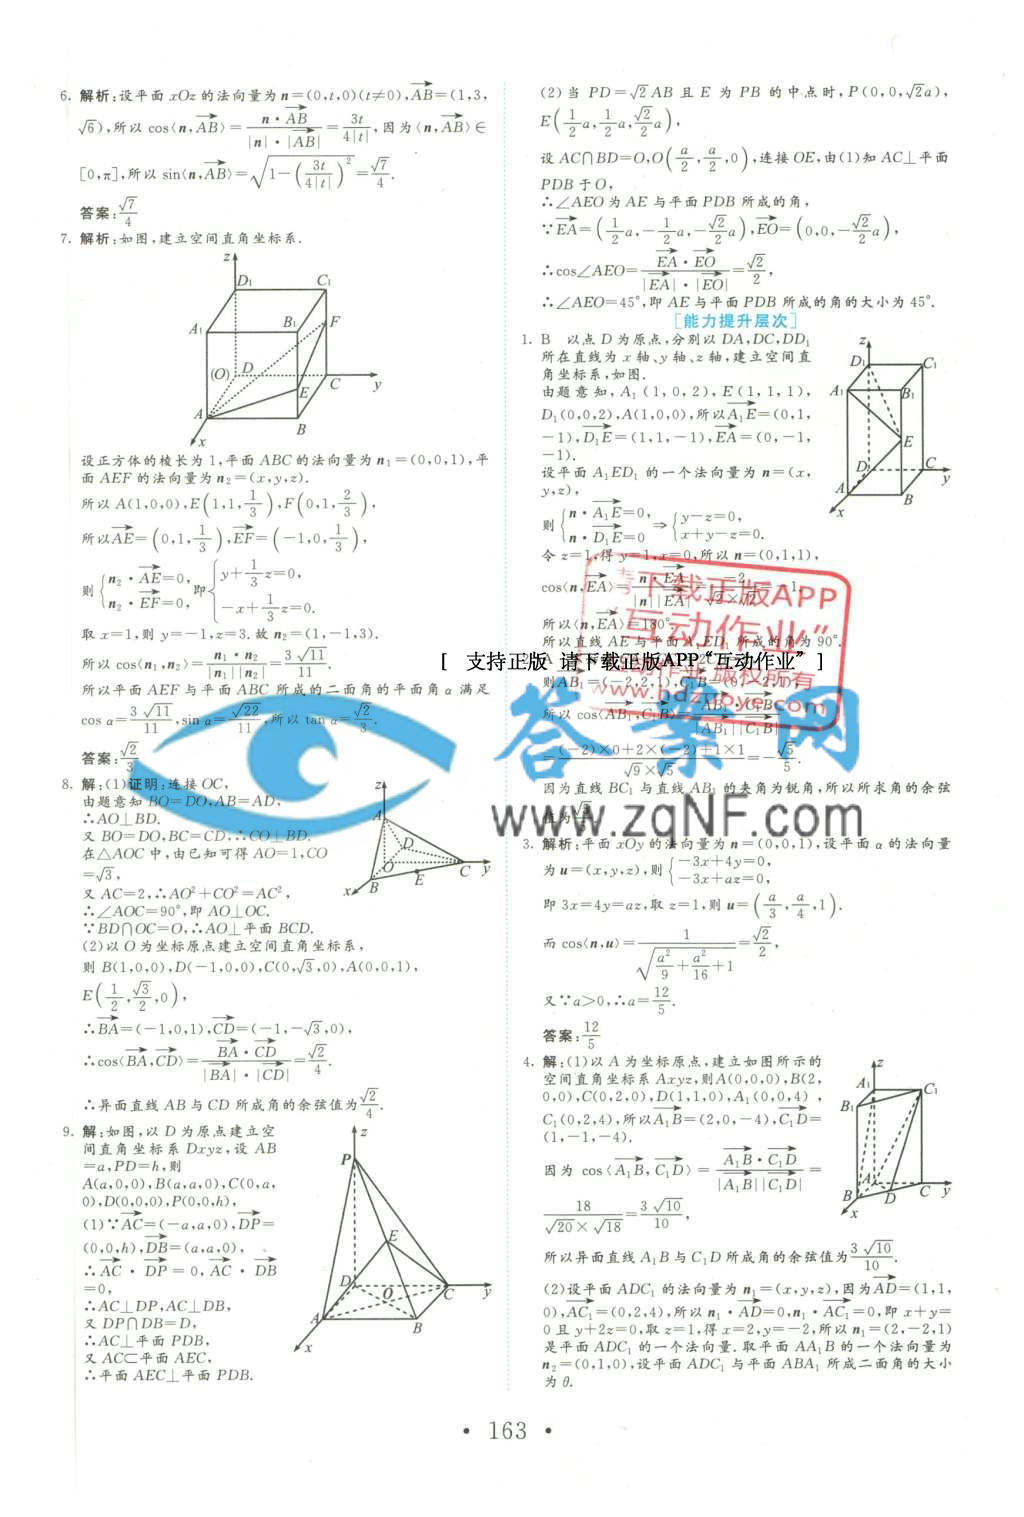 6. 解析:设平面 xOz 的法向量为 n=(0,t,0)(t≠0),AB=(1,3,
√6),所以 cos⟨n,AB⟩=n·AB/|n|·|AB|=3t/4|t|,因为⟨n,AB⟩∈
[0,π],所以 sin⟨n,AB⟩=√1-(3t/4|t|)²=√7/4.
答案:√7/4
7. 解析:如图,建立空间直角坐标系.
z
D₁ C₁
A₁ B₁ F
(O) D C y
E
A B
x
设正方体的棱长为 1,平面 ABC 的法向量为 n₁=(0,0,1),平
面 AEF 的法向量为 n₂=(x,y,z).
所以 A(1,0,0),E(1,1,1/3),F(0,1,2/3),
所以AE=(0,1,1/3),EF=(-1,0,1/3),
则{n₂·AE=0, n₂·EF=0, 即{y+1/3z=0, -x+1/3z=0.
取 x=1,则 y=-1,z=3.故 n₂=(1,-1,3).
所以 cos⟨n₁,n₂⟩=n₁·n₂/|n₁||n₂|=3√11/11.
所以平面 AEF 与平面 ABC 所成的二面角的平面角 α 满足
cos α=3√11/11,sin α=√22/11,所以 tan α=√2/3.
答案:√2/3
8. 解:(1)证明:连接 OC,
由题意知 BO=DO,AB=AD,
∴AO⊥BD.
又 BO=DO,BC=CD,∴CO⊥BD.
在△AOC 中,由已知可得 AO=1,CO
=√3,
又 AC=2,∴AO²+CO²=AC²,
∴∠AOC=90°,即 AO⊥OC.
∵BD∩OC=O,∴AO⊥平面 BCD.
z
A
D
O
B E C y
x
(2)以 O 为坐标原点建立空间直角坐标系,
则 B(1,0,0),D(-1,0,0),C(0,√3,0),A(0,0,1),
E(1/2,√3/2,0),
∴BA=(-1,0,1),CD=(-1,-√3,0),
∴cos⟨BA,CD⟩=BA·CD/|BA|·|CD|=√2/4.
∴异面直线 AB 与 CD 所成角的余弦值为√2/4.
9. 解:如图,以 D 为原点建立空
间直角坐标系 Dxyz,设 AB
=a,PD=h,则
A(a,0,0),B(a,a,0),C(0,a,
0),D(0,0,0),P(0,0,h),
(1)∵AC=(-a,a,0),DP=
(0,0,h),DB=(a,a,0),
∴AC·DP=0,AC·DB
=0,
∴AC⊥DP,AC⊥DB,
又 DP∩DB=D,
∴AC⊥平面 PDB,
又 AC⊂平面 AEC,
∴平面 AEC⊥平面 PDB.
z
P
E
D O C y
A B
x
(2)当 PD=√2AB 且 E 为 PB 的中点时,P(0,0,√2a),
E(1/2a,1/2a,√2/2a),
设 AC∩BD=O,O(a/2,a/2,0),连接 OE,由(1)知 AC⊥平面
PDB 于 O,
∴∠AEO 为 AE 与平面 PDB 所成的角,
∵EA=(1/2a,-1/2a,-√2/2a),EO=(0,0,-√2/2a),
∴cos∠AEO=EA·EO/|EA|·|EO|=√2/2,
∴∠AEO=45°,即 AE 与平面 PDB 所成的角的大小为 45°.
[能力提升层次]
1. B 以点 D 为原点,分别以 DA,DC,DD₁
所在直线为 x 轴、y 轴、z 轴,建立空间直
角坐标系,如图.
由题意知,A₁(1,0,2),E(1,1,1),
D₁(0,0,2),A(1,0,0),所以A₁E=(0,1,
-1),D₁E=(1,1,-1),EA=(0,-1,
-1).
设平面 A₁ED₁ 的一个法向量为 n=(x,
y,z),
z
D₁ C₁
A₁ B₁
E
D C y
A B
x
则{n·A₁E=0, n·D₁E=0 ⇒{y-z=0, x+y-z=0.
令 z=1,得 y=1,x=0,所以 n=(0,1,1),
cos⟨n,EA⟩=n·EA/|n||EA|=-2/√2×√2=-1.
所以⟨n,EA⟩=180°.
所以直线 AE 与平面 A₁ED₁ 所成的角为 90°.
2. A
则AB₁=(-2,2,1),C₁B=(0,-2,1),
所以 cos⟨AB₁,C₁B⟩=AB₁·C₁B/|AB₁||C₁B|
=(-2)×0+2×(-2)+1×1/√9×√5=-√5/5.
因为直线 BC₁ 与直线 AB₁ 的夹角为锐角,所以所求角的余弦
值为√5/5.
3. 解析:平面 xOy 的法向量为 n=(0,0,1),设平面 α 的法向量
为 u=(x,y,z),则{-3x+4y=0, -3x+az=0,
即 3x=4y=az,取 z=1,则 u=(a/3,a/4,1).
而 cos⟨n,u⟩=1/√a²/9+a²/16+1=√2/2,
又∵a>0,∴a=12/5.
答案:12/5
4. 解:(1)以 A 为坐标原点,建立如图所示的
空间直角坐标系 Axyz,则A(0,0,0),B(2,
0,0),C(0,2,0),D(1,1,0),A₁(0,0,4),
C₁(0,2,4),所以A₁B=(2,0,-4),C₁D=
(1,-1,-4).
因为 cos⟨A₁B,C₁D⟩=A₁B·C₁D/|A₁B||C₁D|=
18/√20×√18=3√10/10,
z
A₁ C₁
B₁
A
B D C y
x
所以异面直线 A₁B 与 C₁D 所成角的余弦值为3√10/10.
(2)设平面 ADC₁ 的法向量为 n₁=(x,y,z),因为AD=(1,1,
0),AC₁=(0,2,4),所以 n₁·AD=0,n₁·AC₁=0,即 x+y=
0 且 y+2z=0,取 z=1,得 x=2,y=-2,所以 n₁=(2,-2,1)
是平面 ADC₁ 的一个法向量.取平面 AA₁B 的一个法向量为
n₂=(0,1,0),设平面 ADC₁ 与平面 ABA₁ 所成二面角的大小
为 θ.
[ 支持正版 请下载正版APP“互动作业” ]
下载正版APP
“互动作业”
版权所有
答案网
www.zqNF.com
· 163 ·